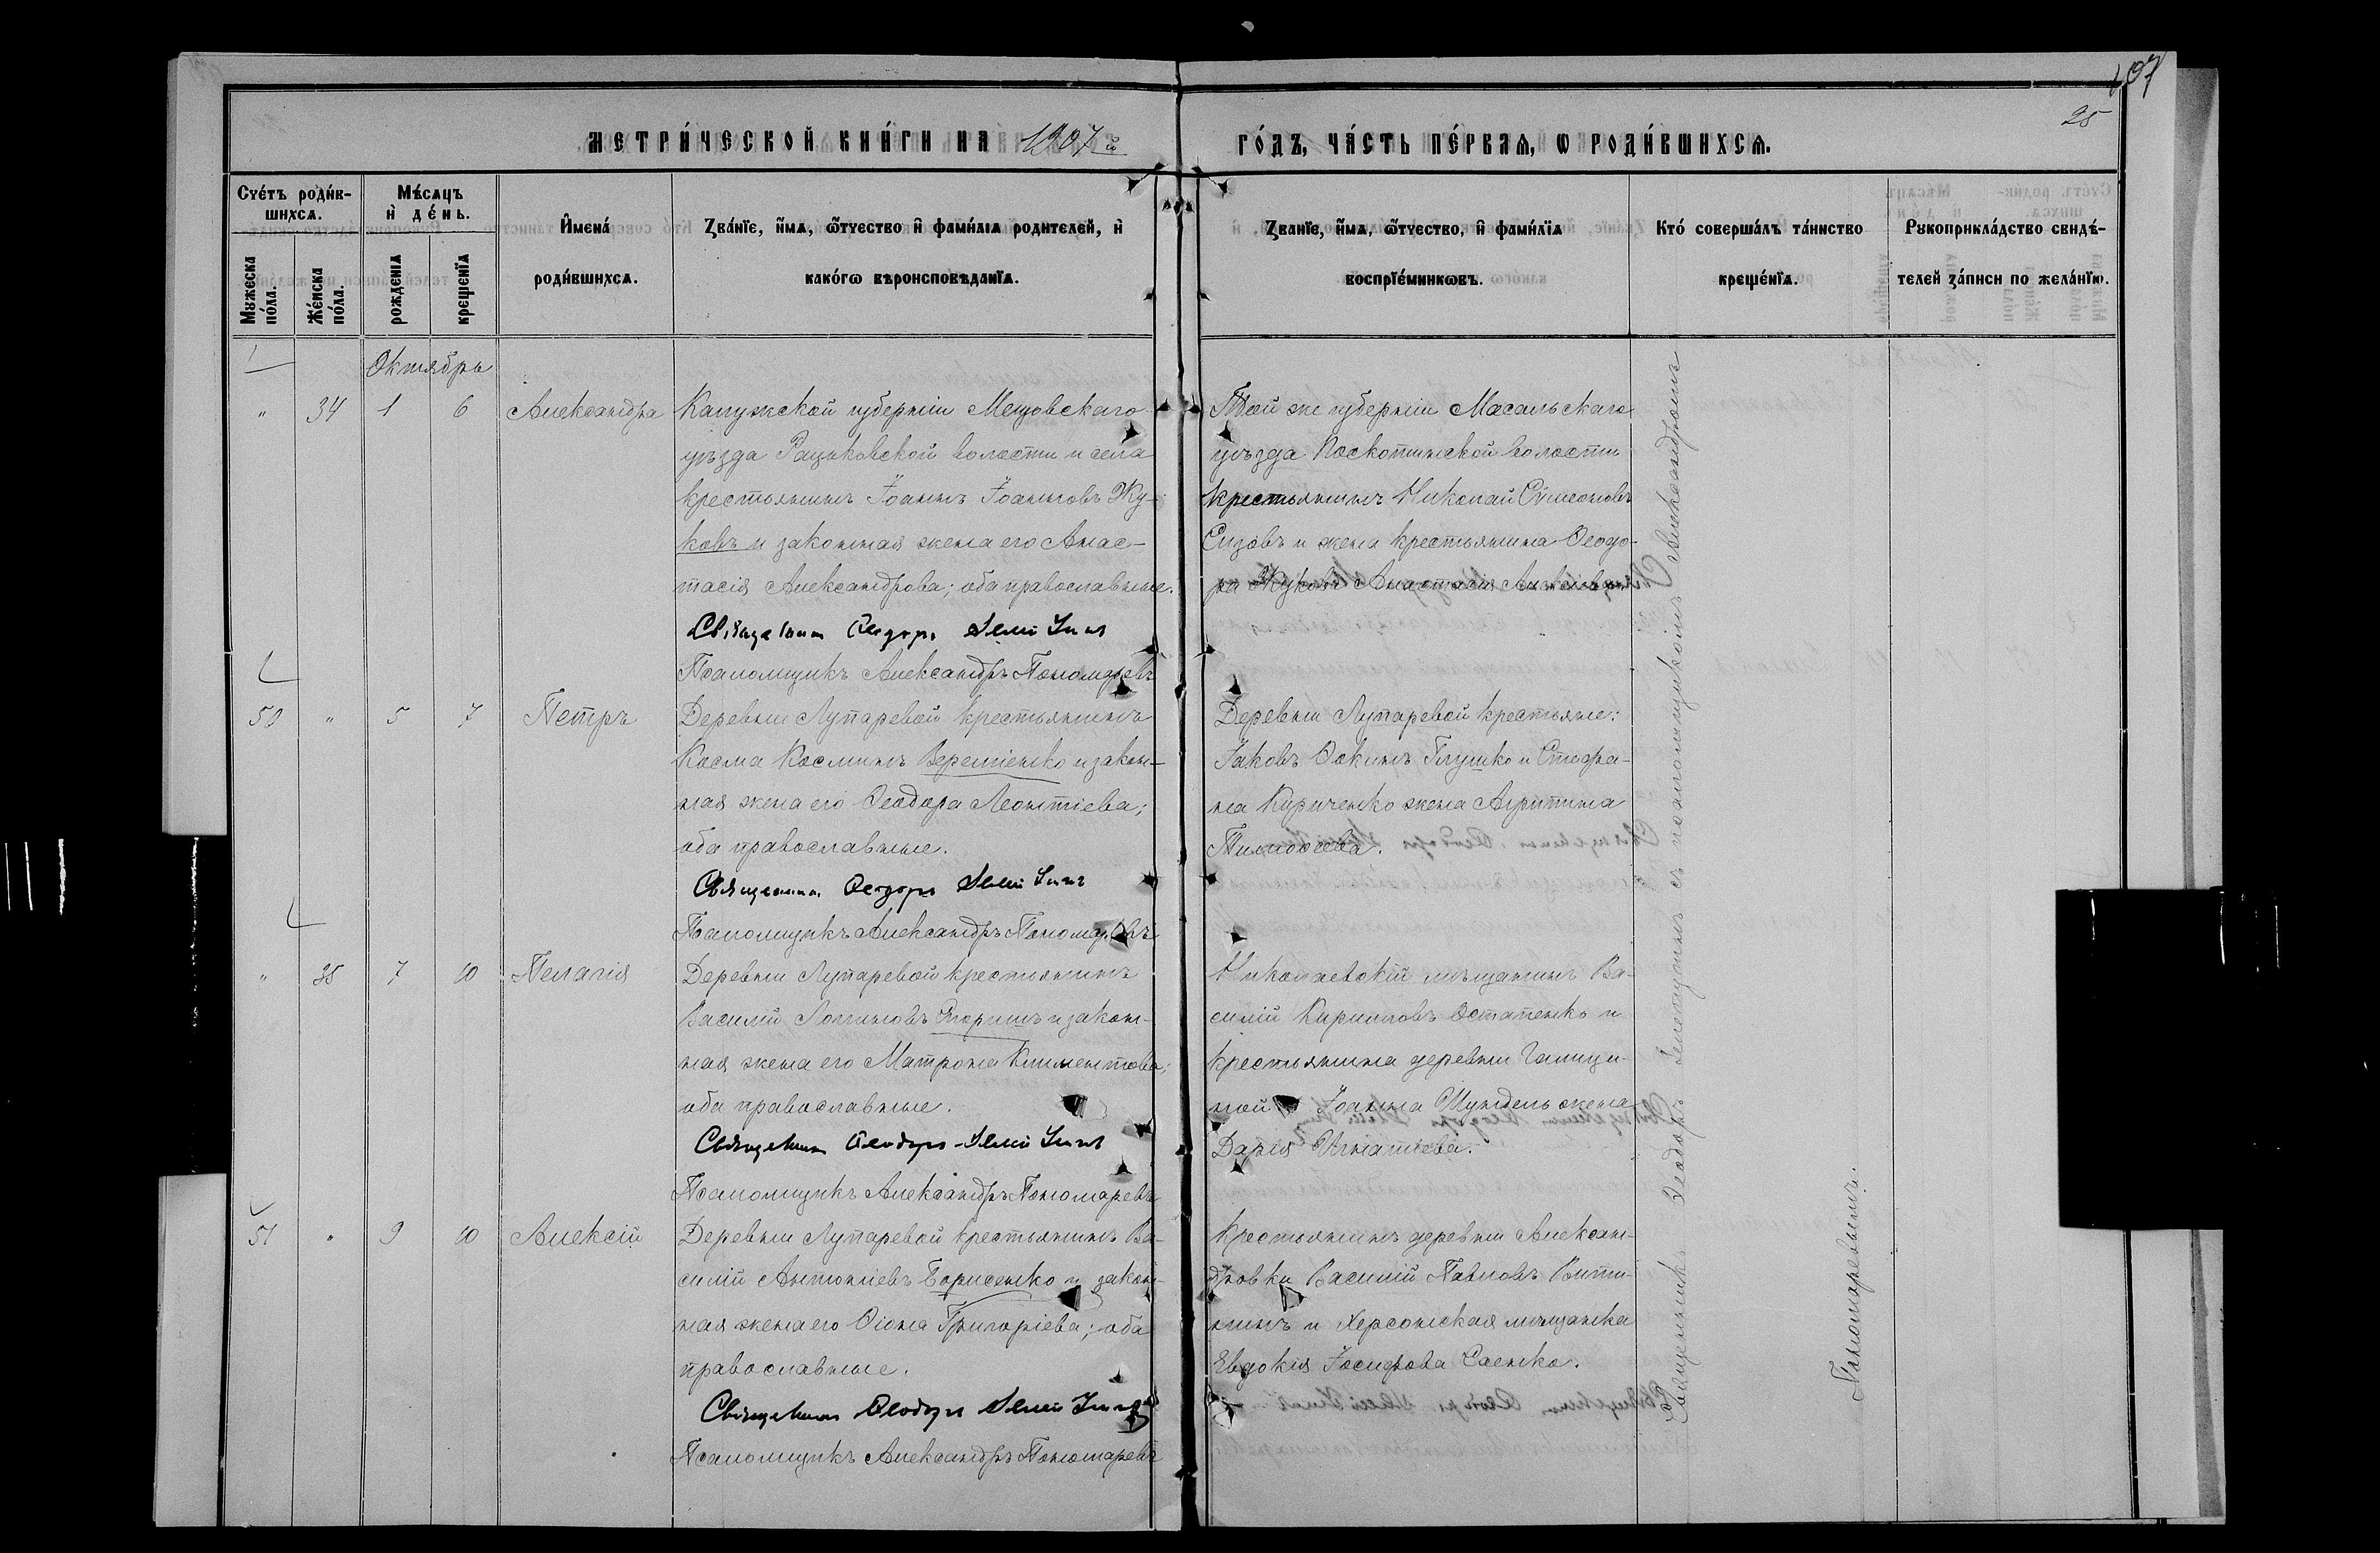 107
25
МЕТРИ́ЧЕСКОЙ КНИ́ГИ НА 1907 й ГО́ДЪ, ЧА́СТЬ ПЕ́РВАѦ, Ѡ РОДИ́ВШИХСѦ.
Сче́тъ роди́в-
шихсѧ.
Мꙋжеска по́ла.
Же́нска по́ла.
Мѣ́сѧцъ
и҆ де́нь.
рожденїѧ
крещенїѧ
И҆мена́
роди́вшихсѧ.
Ꙁва́нїе, и҆́мѧ, ѻ҆́тчество и҆ фами́лїѧ родителей, и҆
како́гѡ вѣроисповѣданїѧ.
Ꙁванїе, и҆́мѧ, ѻ҆́тчество, и҆ фами́лїѧ
воспрїе́мниковъ.
Кто́ соверша́лъ та́инство
креще́нїѧ.
Рꙋкоприкла́дство свидѣ́-
телей ꙁа́писи по жела́нїю.
Октябрь
" 34 1 6 Александра
Калужской губерніи Мещовскаго
уѣзда волости и села
крестьянинъ Іоаннъ Іоанновъ Жу-
ковъ и законная жена его Анас-
тасія Александрова; оба православные.
Священникъ Ѳеодоръ
Псаломщикъ Александръ Пономаревъ
Той же губерніи Масальскаго
уѣзда волости
крестьянинъ Николай Сѵмеоновъ
Сизовъ и жена крестьянина Ѳеодо-
ра Жукова Анастасія Алексіева.
50 " 5 7 Петръ
Деревни Лупаревой крестьянинъ
Косма Косминъ и закон-
ная жена его Ѳеодора Леонтіева;
оба православные.
Священникъ Ѳеодоръ
Псаломщикъ Александръ Пономаревъ
Деревни Лупаревой крестьяне:
Іаковъ Ѳокинъ Глушко и Стефа-
на Кириченко жена Агриппина
Тимоѳеева.
" 35 7 10 Пелагія
Деревни Лупаревой крестьянинъ
Василій Логиновъ и закон-
ная жена его Матрона Климентова;
оба православные.
Священникъ Ѳеодоръ
Псаломщикъ Александръ Пономаревъ
Николаевскій мѣщанинъ Ва-
силій Кирилловъ Остапенко и
крестьянина деревни Галици-
ной Іоанна Шундель жена
Дарія Игнатіева.
51 " 9 10 Алексій
Деревни Лупаревой крестьянинъ Ва-
силій Антоніевъ Борисенко и закон-
ная жена его Ѳіона Григоріева; оба
православные.
Священникъ Ѳеодоръ
Псаломщикъ Александръ Пономаревъ
Крестьянинъ деревни Алексан-
дровки Василій Павловъ
и Херсонская мѣщанка
Евдокія Іосифова Саенко.
Священникъ Ѳеодоръ съ псаломщикомъ Александромъ
Пономаревымъ.